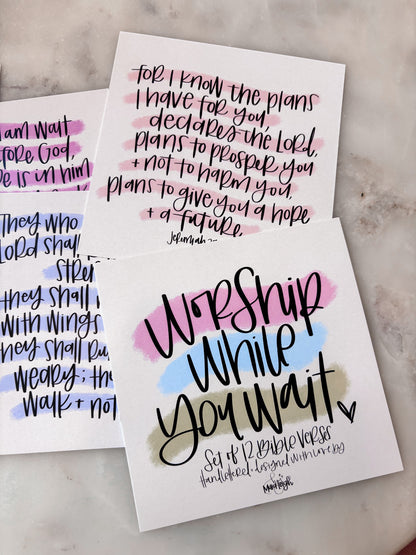 for I know the plans
I have for you,
declares the Lord,
plans to prosper you
+ not to harm you,
plans to give you a hope
+ a future.
Jeremiah
am wait
fore God,
e is in him
They who
Lord shall
stren
they shall
with wings
they shall ru
weary; the
walk + not
Worship
While
You Wait
Set of 12 Bible Verses
Handlettered + designed with love by